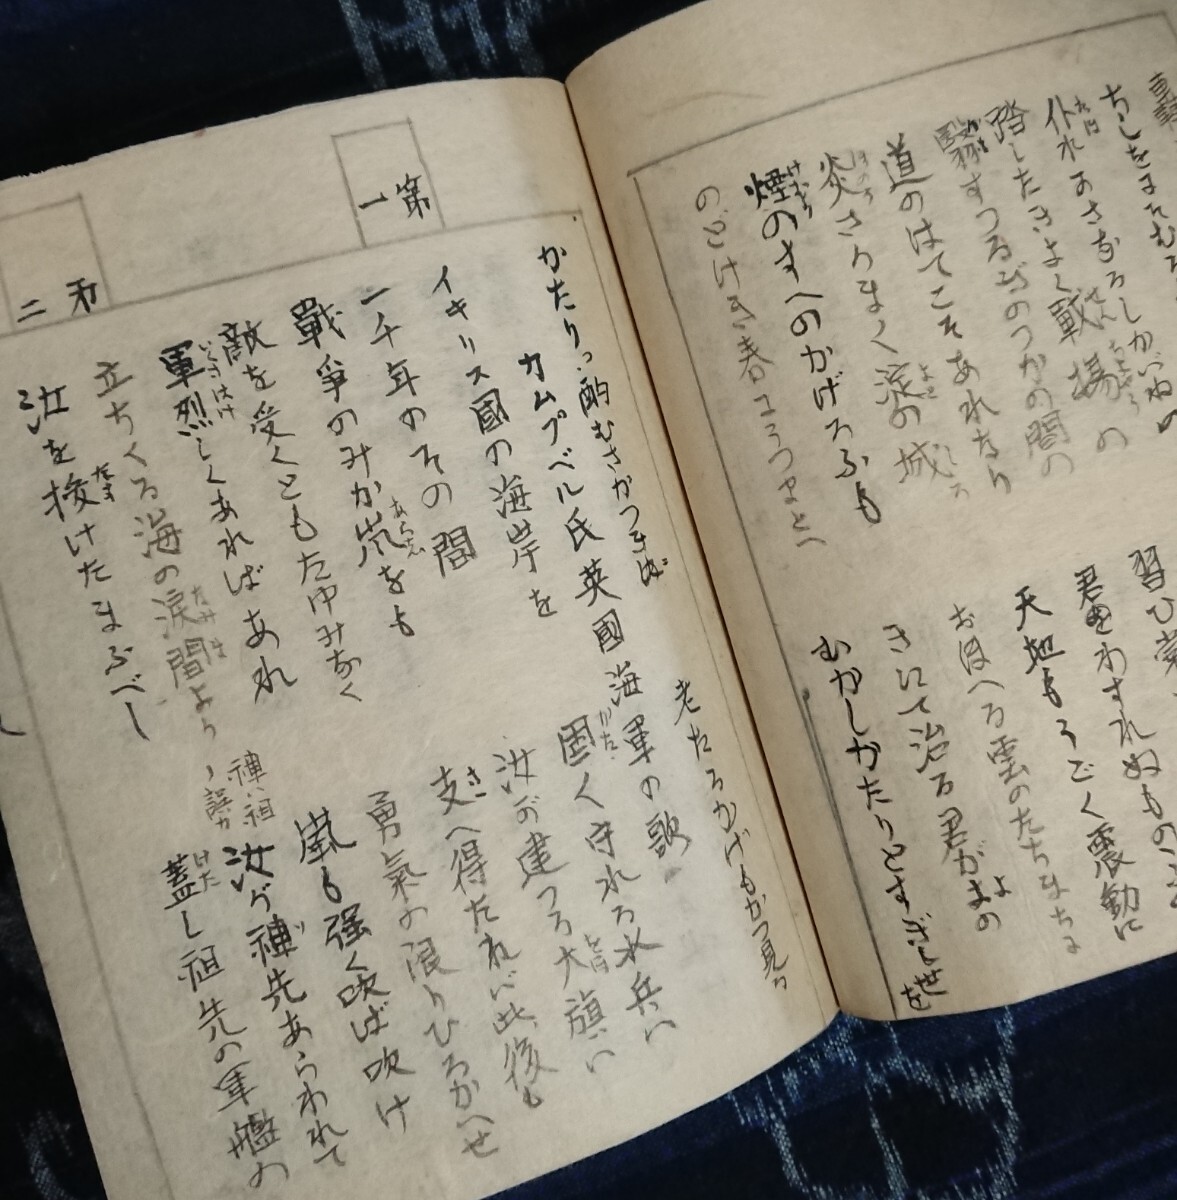 ちしをまそむる
仆れあさなろしかばねの
踏したきよく戰場の
するつかの間の
道のはてこそあれなり
炎さかまく淀の城
煙のすへのかげろふも
のどけき春に
習ひ
君をわすれぬものゝふ
天地もうごく震動に
おほへる雲のたちまちに
きにて治る君がよの
むかしがたりとすぎし世を
かたりつ酌むさかつきに
老たるかげもかつ見る
カムプベル氏英國海軍の歌
第一
イキリス國の海岸を
固く守れる水兵ハ
一千年のその間
汝が建つる大旗ハ
戰爭のみか嵐をも
支へ得たれバ此後も
敵を受くともたゆみなく
勇氣の限りひるがへせ
軍烈しくあればあれ
嵐も强く吹ば吹け
第二
立ちくる海の浪間より
汝が祖先あらわれて
汝を援けたまふべし
蓋し祖先の軍艦の